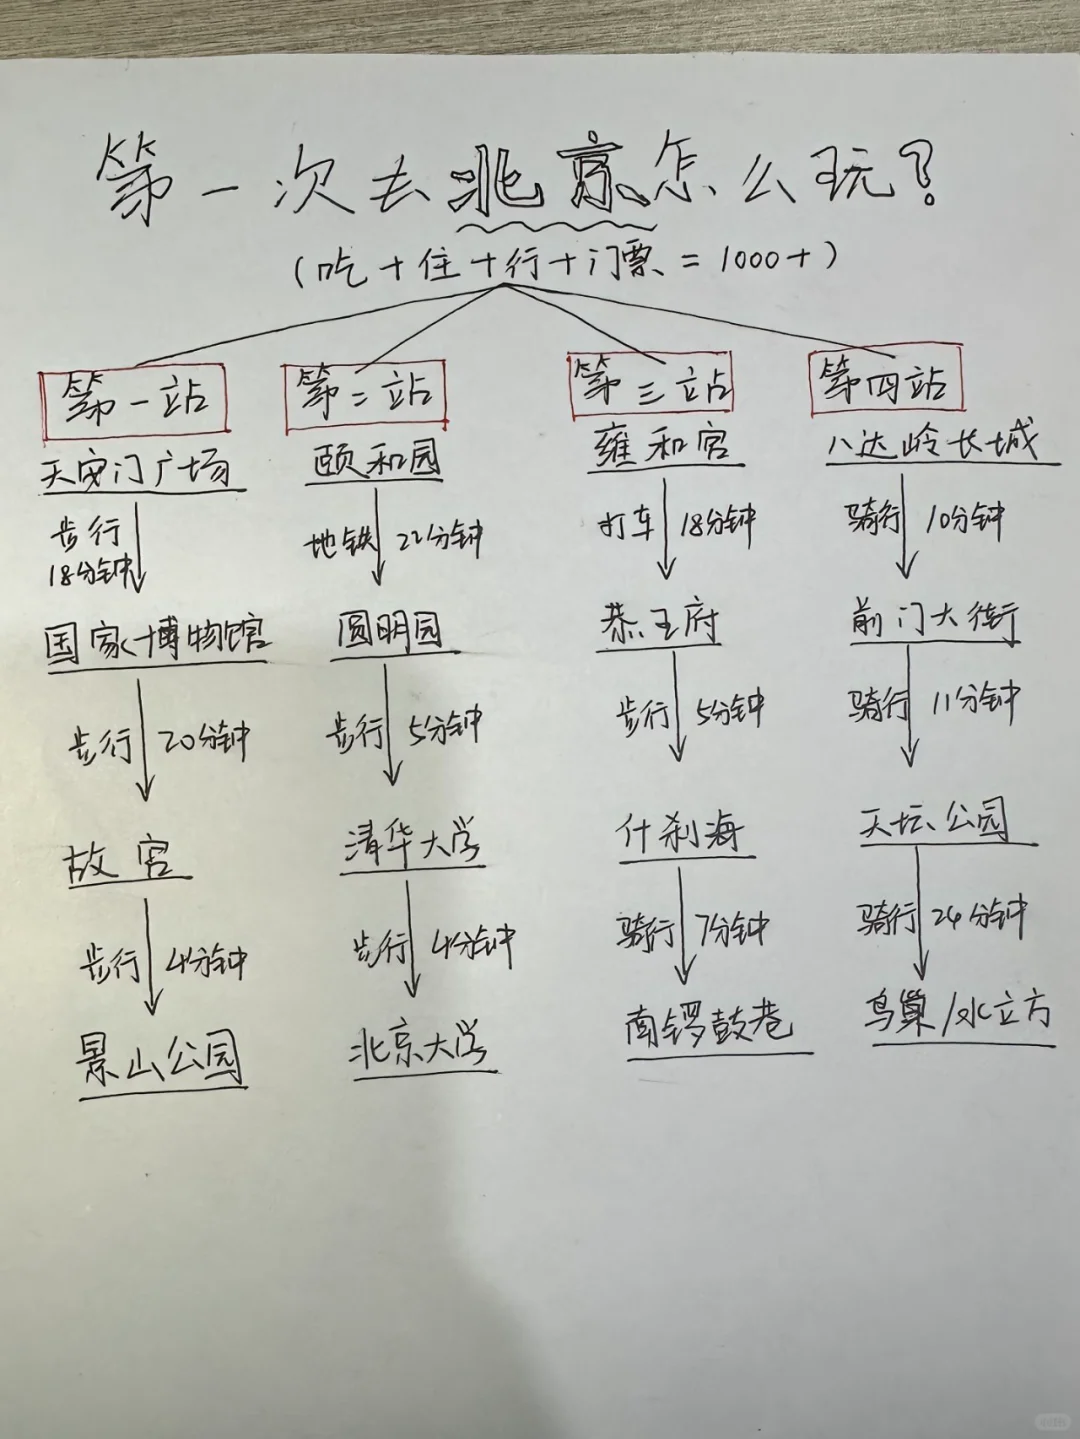 第一次去北京怎么玩？
（吃＋住＋行＋门票＝1000＋）
第一站
天安门广场
步行
18分钟
国家博物馆
步行 20分钟
故宫
步行 4分钟
景山公园
第二站
颐和园
地铁 22分钟
圆明园
步行 5分钟
清华大学
步行 4分钟
北京大学
第三站
雍和宫
打车 18分钟
恭王府
步行 5分钟
什刹海
骑行 7分钟
南锣鼓巷
第四站
八达岭长城
骑行 10分钟
前门大街
骑行 11分钟
天坛公园
骑行 24分钟
鸟巢/水立方